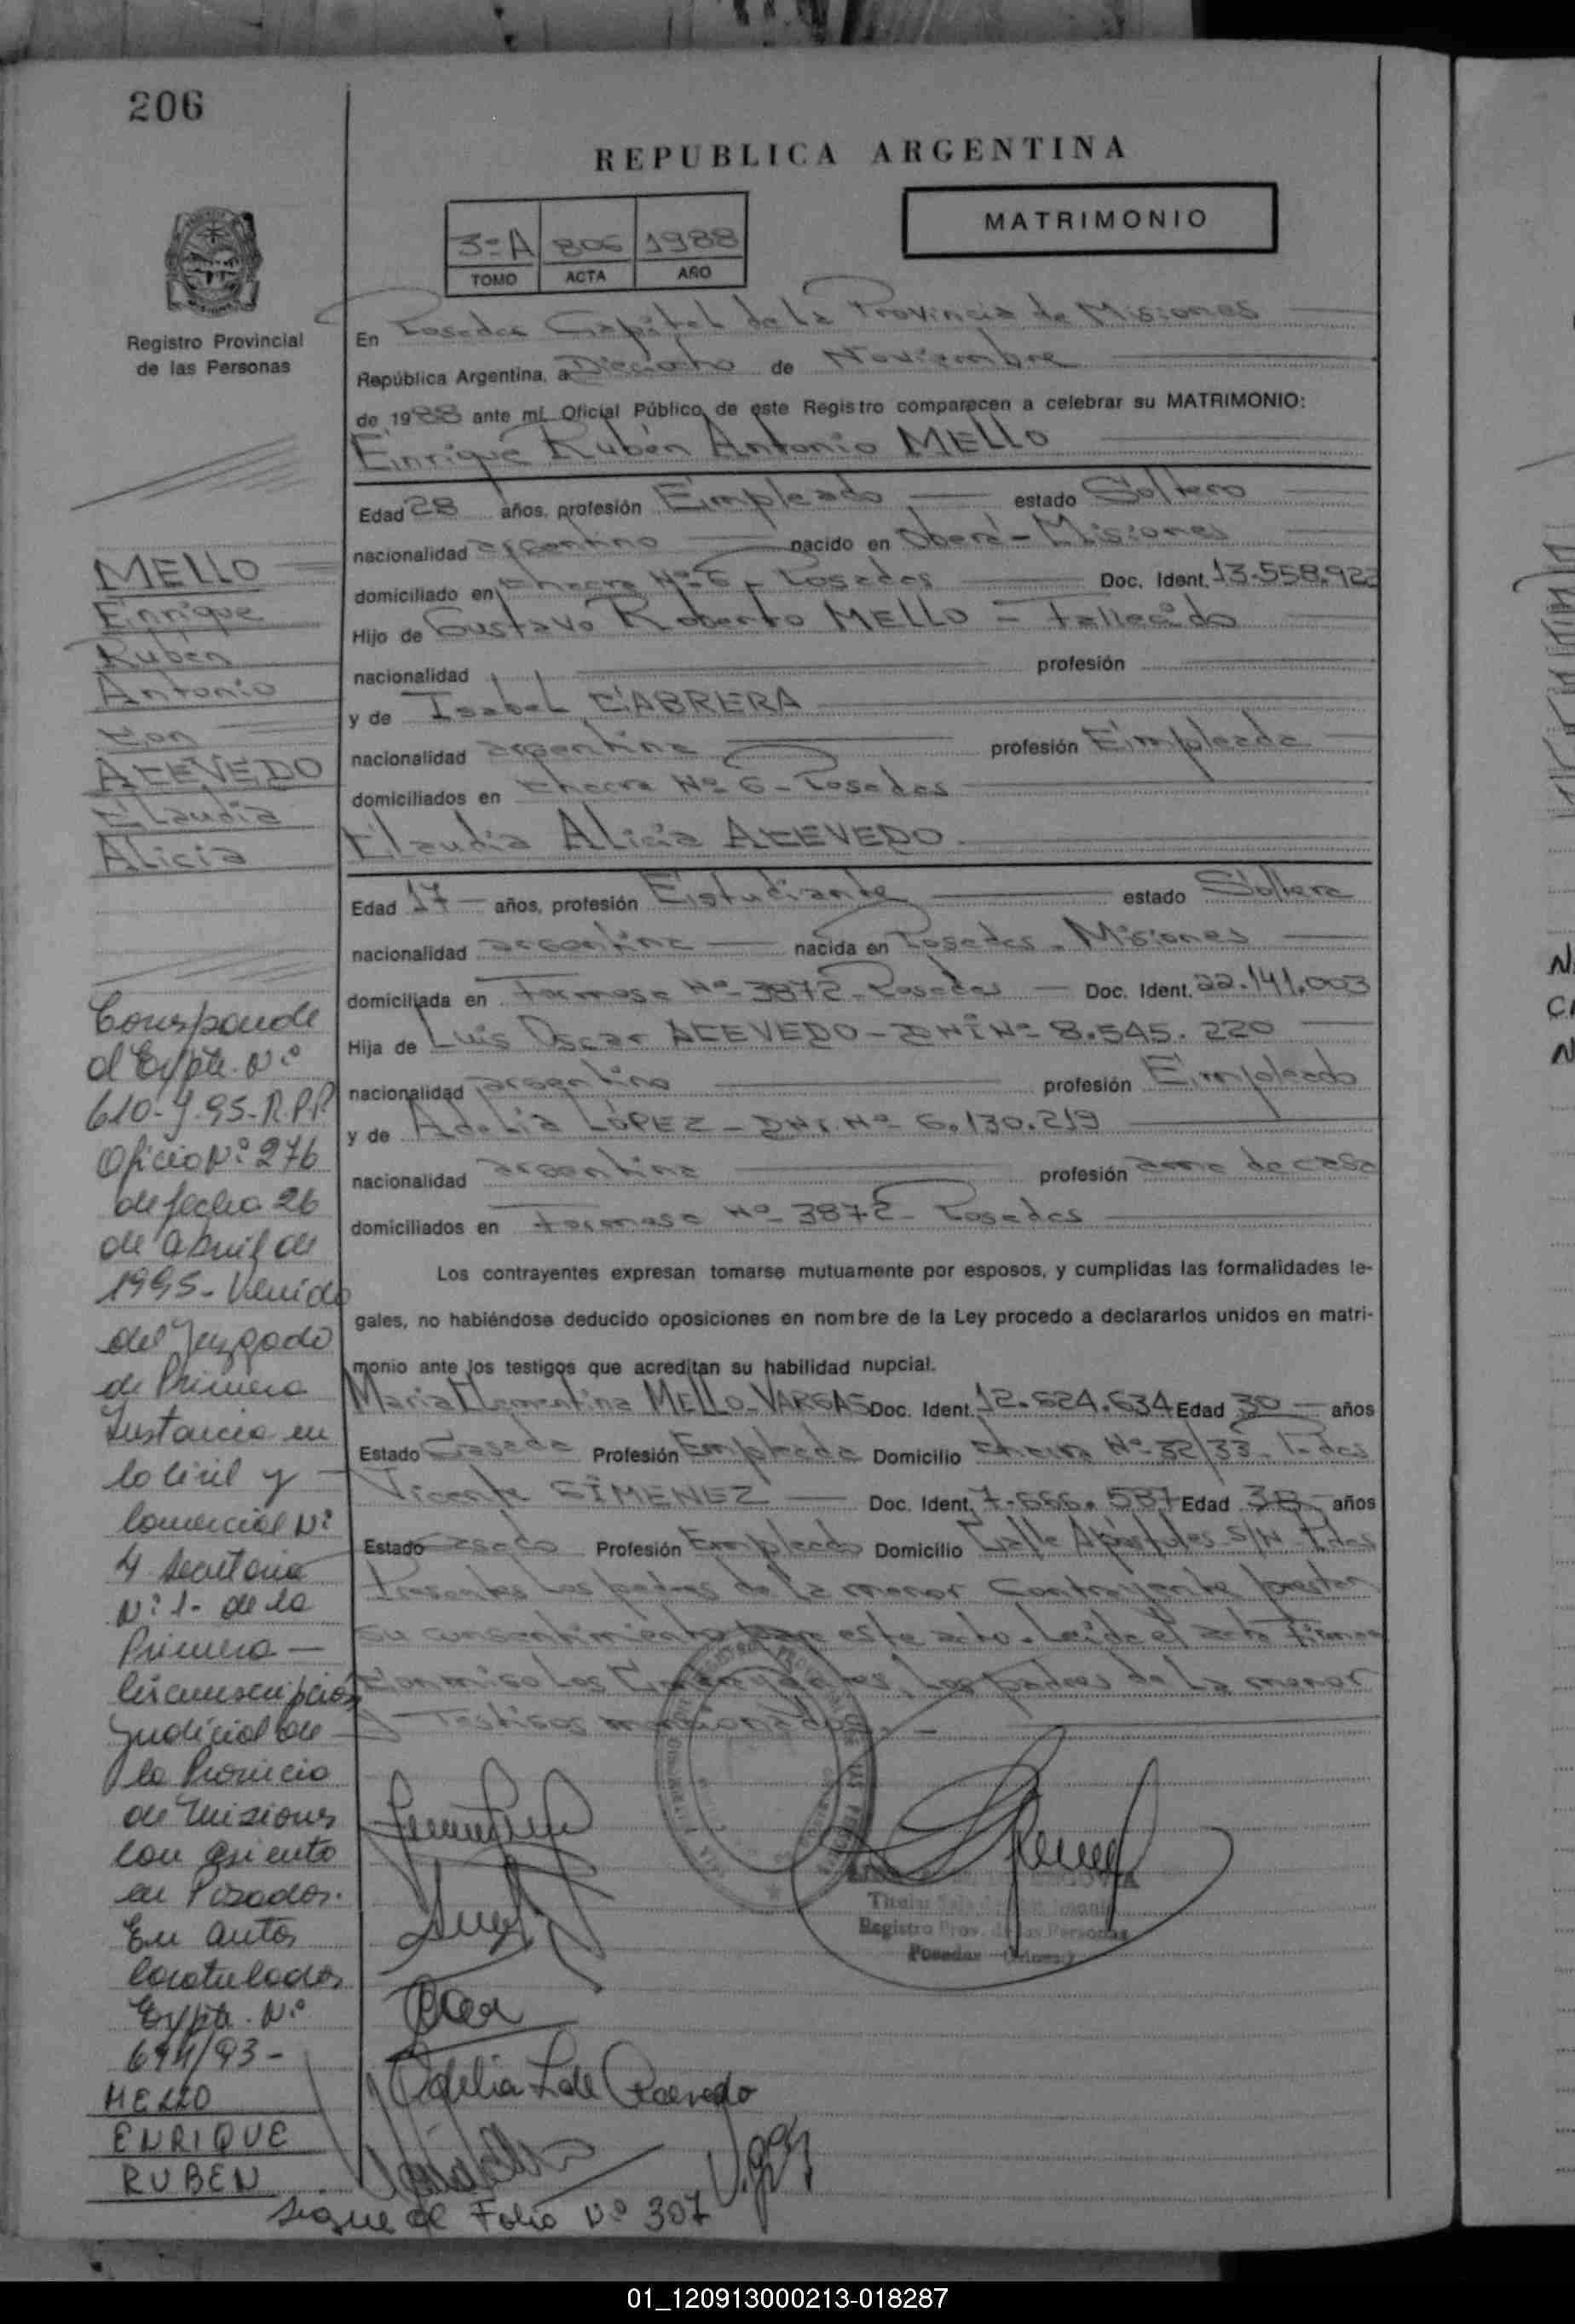 206
REPUBLICA ARGENTINA
MATRIMONIO
3ºA 806 1988
TOMO ACTA AÑO
Registro Provincial
de las Personas
En Posadas Capital de la Provincia de Misiones
República Argentina, a Dieciocho de Noviembre
de 1988 ante mí, Oficial Público, de este Registro comparecen a celebrar su MATRIMONIO:
Enrique Rubén Antonio MELLO
Edad 28 años, profesión Empleado estado Soltero
nacionalidad argentino nacido en Oberá - Misiones
domiciliado en Chacra Nº 6 - Posadas Doc. Ident. 13.558.922
Hijo de Gustavo Roberto MELLO - Fallecido
nacionalidad profesión
y de Isabel CABRERA
nacionalidad argentina profesión Empleada
domiciliados en Chacra Nº 6 - Posadas
Claudia Alicia ACEVEDO
Edad 17 años, profesión Estudiante estado Soltera
nacionalidad argentina nacida en Posadas - Misiones
domiciliada en Formosa Nº 3872 - Posadas Doc. Ident. 22.141.003
Hija de Luis Oscar ACEVEDO - DNI Nº 8.545.220
nacionalidad argentino profesión Empleado
y de Adelia LÓPEZ - DNI. Nº 6.130.219
nacionalidad argentina profesión ama de casa
domiciliados en Formosa Nº 3872 - Posadas
Los contrayentes expresan tomarse mutuamente por esposos, y cumplidas las formalidades le-
gales, no habiéndose deducido oposiciones en nombre de la Ley procedo a declararlos unidos en matri-
monio ante los testigos que acreditan su habilidad nupcial.
María Clementina MELLO - VARGAS Doc. Ident. 12.624.634 Edad 30 años
Estado Casada Profesión Empleada Domicilio Chacra Nº 32/33 - Pdas
Vicente GIMENEZ Doc. Ident. 7.666.537 Edad 38 años
Estado Casado Profesión Empleado Domicilio Calle Apóstoles S/N - Pdas
Presentes los padres de la menor contrayente prestan
su consentimiento para este acto. Leída el acta Firman
Conmigo Los Contrayentes, los padres de la menor
y Testigos mencionados. -
Adelia L de Acevedo
Registro Prov. de las Personas
Posadas
MELLO
Enrique
Rubén
Antonio
Con
ACEVEDO
Claudia
Alicia
Corresponde
al Expte. Nº
610-J-95-R.P.P.
Oficio Nº 276
de fecha 26
de abril de
1995 - Venido
del Juzgado
de Primera
Instancia en
lo Civil y
Comercial Nº
4 Secretaria
Nº 1 - de la
Primera -
Circunscripción
Judicial de
la Provincia
de Misiones
con asiento
en Posadas.
En autos
Caratulados
Expte. Nº
691/93 -
MELLO
ENRIQUE
RUBEN
Sigue al Folio Nº 307
01_120913000213-018287